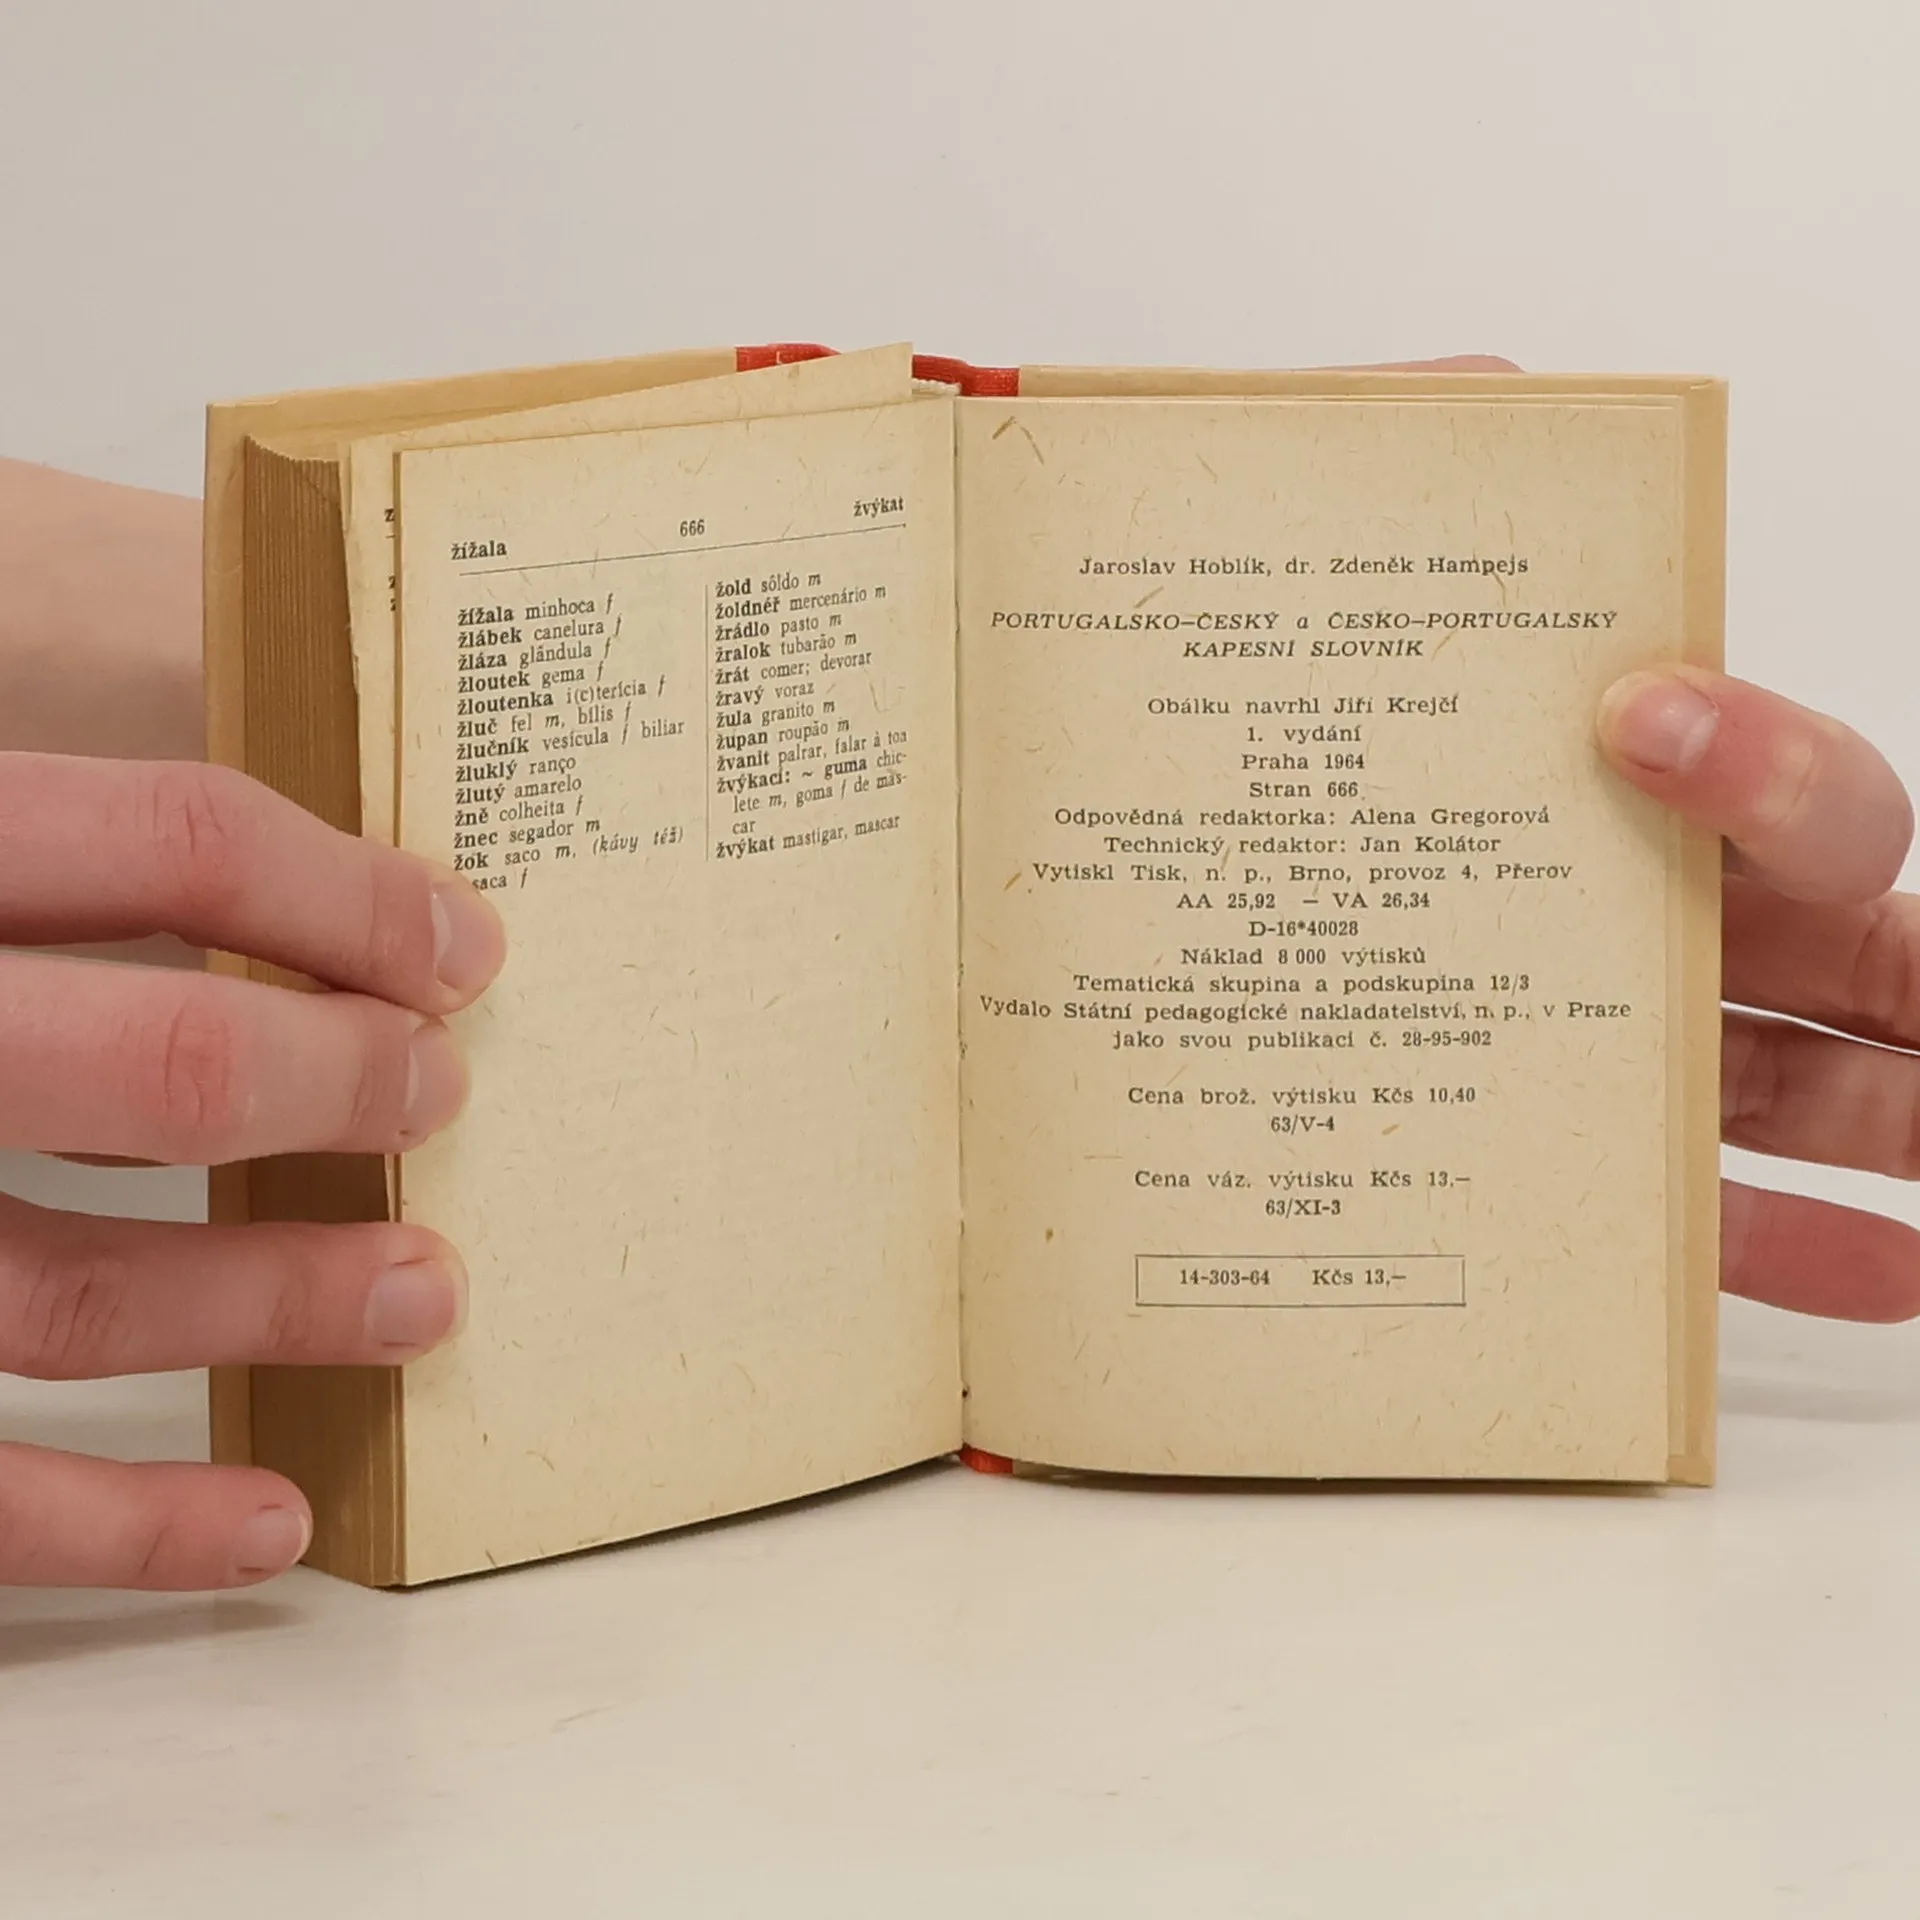 žížala 666 žvýkat
žížala minhoca f
žlábek canelura f
žláza glândula f
žloutek gema f
žloutenka i(c)terícia f
žluč fel m, bílis f
žlučník vesícula f biliar
žluklý ranço
žlutý amarelo
žně colheita f
žnec segador m
žok saco m, (kávy též)
saca f
žold sôldo m
žoldnéř mercenário m
žrádlo pasto m
žralok tubarão m
žrát comer; devorar
žravý voraz
žula granito m
župan roupão m
žvanit palrar, falar à toa
žvýkací: ~ guma chic-
lete m, goma f de mas-
car
žvýkat mastigar, mascar
Jaroslav Hoblík, dr. Zdeněk Hampejs
PORTUGALSKO–ČESKÝ a ČESKO–PORTUGALSKÝ
KAPESNÍ SLOVNÍK
Obálku navrhl Jiří Krejčí
1. vydání
Praha 1964
Stran 666
Odpovědná redaktorka: Alena Gregorová
Technický redaktor: Jan Kolátor
Vytiskl Tisk, n. p., Brno, provoz 4, Přerov
AA 25,92 – VA 26,34
D-16*40028
Náklad 8 000 výtisků
Tematická skupina a podskupina 12/3
Vydalo Státní pedagogické nakladatelství, n. p., v Praze
jako svou publikaci č. 28-95-902
Cena brož. výtisku Kčs 10,40
63/V-4
Cena váz. výtisku Kčs 13,–
63/XI-3
14-303-64 Kčs 13,–